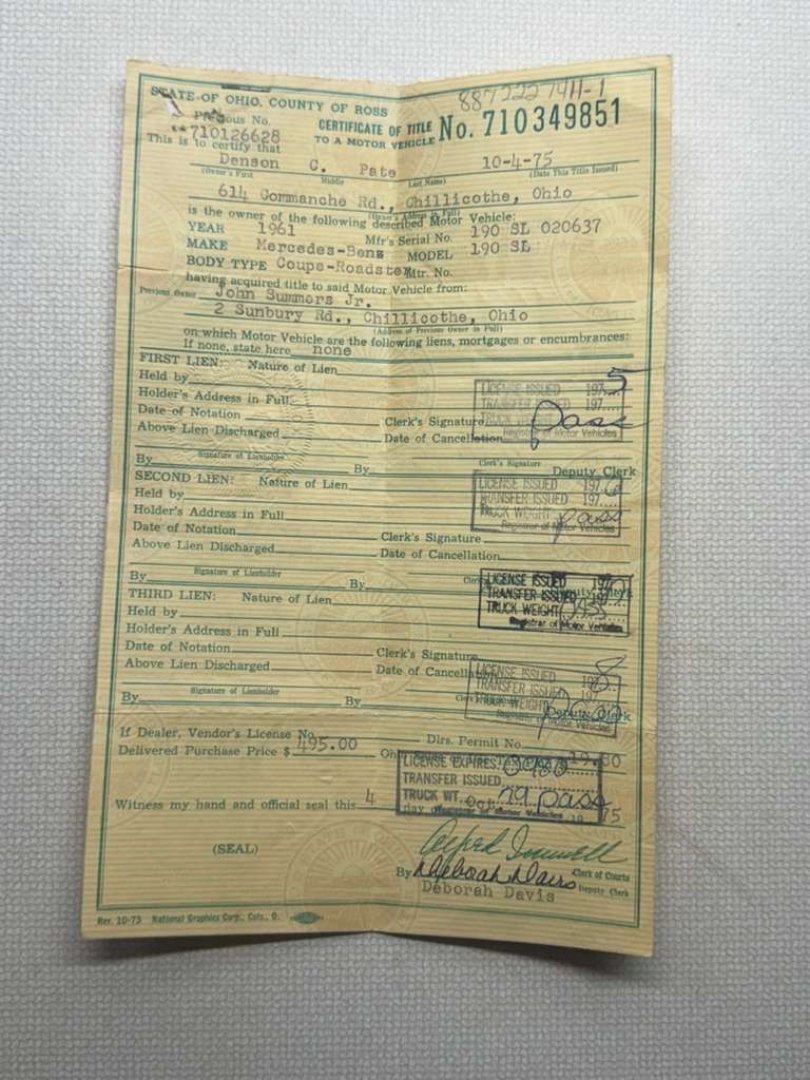 8872227911-1
STATE OF OHIO, COUNTY OF ROSS
Previous No.
710126628
CERTIFICATE OF TITLE
TO A MOTOR VEHICLE
No. 710349851
This is to certify that
Denson C. Pate 10-4-75
(Owner's First Middle Last Name) (Date This Title Issued)
614 Gommanche Rd., Chillicothe, Ohio
(Owner's Address in Full)
is the owner of the following described Motor Vehicle:
YEAR 1961 Mfr's Serial No. 190 SL 020637
MAKE Mercedes-Bens MODEL 190 SL
BODY TYPE Coupe-Roadster Mtr. No.
having acquired title to said Motor Vehicle from:
Previous Owner John Summers Jr.
2 Sunbury Rd., Chillicothe, Ohio
(Address of Previous Owner in Full)
on which Motor Vehicle are the following liens, mortgages or encumbrances:
If none, state here none
FIRST LIEN: Nature of Lien
Held by
Holder's Address in Full
Date of Notation Clerk's Signature
Above Lien Discharged Date of Cancellation
LICENSE ISSUED 1975
TRANSFER ISSUED 197
TRUCK pass
Registrar of Motor Vehicles
By By Deputy Clerk
Signature of Lienholder Clerk's Signature
SECOND LIEN: Nature of Lien
Held by
Holder's Address in Full
Date of Notation Clerk's Signature
Above Lien Discharged Date of Cancellation
LICENSE ISSUED 1976
TRANSFER ISSUED 197
TRUCK WEIGHT pass
Registrar of Motor Vehicles
By By
Signature of Lienholder
THIRD LIEN: Nature of Lien
Held by
Holder's Address in Full
Date of Notation Clerk's Signature
Above Lien Discharged Date of Cancellation
LICENSE ISSUED 197
TRANSFER ISSUED 197
TRUCK WEIGHT pass
Registrar of Motor Vehicles
By By Deputy Clerk
Signature of Lienholder
LICENSE ISSUED 1978
TRANSFER ISSUED 197
TRUCK WEIGHT
Registrar of Motor Vehicles
If Dealer, Vendor's License No. Dlrs. Permit No.
Delivered Purchase Price $ 495.00 19.80
LICENSE EXPIRES: 0480
TRANSFER ISSUED
TRUCK WT. 79 pass
Registrar of Motor Vehicles
Witness my hand and official seal this 4 day Oct. 19 75
(SEAL)
Clerk of Courts
By Deborah Davis
Deborah Davis Deputy Clerk
Rev. 10-73 National Graphics Corp., Cols., O.